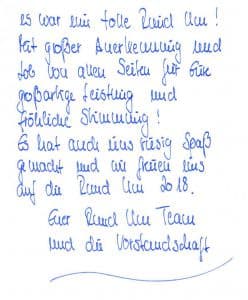 es war ein tolle Rund Um!
Mit großer Anerkennung und
Lob von allen Seiten für Eure
großartige Leistung und
fröhliche Stimmung!
Es hat auch uns riesig Spaß
gemacht und wir freuen uns
auf die Rund Um 2018.
Euer Rund Um Team
und die Vorstandschaft